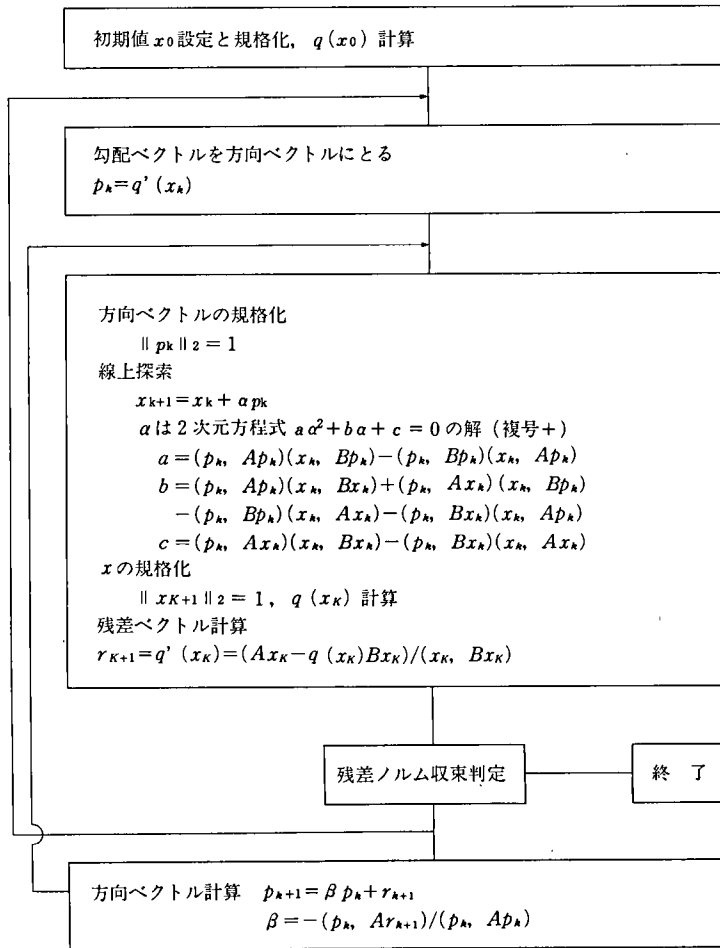 初期値 x0 設定と規格化, q (x0) 計算
勾配ベクトルを方向ベクトルにとる
pk=q' (xk)
方向ベクトルの規格化
‖ pk ‖2 = 1
線上探索
xk+1=xk + αpk
αは2次元方程式 aα²+bα+c = 0の解 (複号+)
a=(pk, Apk)(xk, Bpk)-(pk, Bpk)(xk, Apk)
b=(pk, Apk)(xk, Bxk)+(pk, Axk) (xk, Bpk)
-(pk, Bpk)(xk, Axk)-(pk, Bxk)(xk, Apk)
c=(pk, Axk)(xk, Bxk)-(pk, Bxk)(xk, Axk)
xの規格化
‖ xK+1 ‖2 = 1, q (xK) 計算
残差ベクトル計算
rK+1=q' (xK)=(AxK-q (xK)BxK)/(xK, BxK)
残差ノルム収束判定
終 了
方向ベクトル計算 pk+1=βpk+rk+1
β=-(pk, Ark+1)/(pk, Apk)